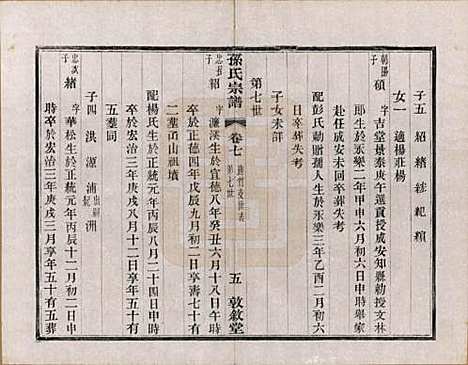 子五 紹 緒 綋 紀 縯
女一 適楊莊楊
朝陽子 碩 字吉堂景泰庚午選貢授成安知縣勅授文林
郎生於永樂二年甲申六月初六日申時舉家
赴任成安未回卒葬失考
配彭氏勅贈孺人生於永樂三年乙酉二月初六
日卒葬失考
子女未詳
第七世
忠長子 紹 字濂溪生於宣德八年癸丑六月十八日午時
孫氏宗譜 卷七 第七世 五 敦敘堂
卒於正德四年戊辰九月初二日卒壽七十有
二葬甬山祖墳
配楊氏生於正統元年丙辰八月二十四日申時
卒於宏治三年庚戌八月十二日卒享年五十有
五葬同
子四 洪 源 浦出嗣紀 洲
忠次子 緒 字華松生於正統元年丙辰十二月初二日申
時卒於宏治三年庚戌三月享年五十有五葬